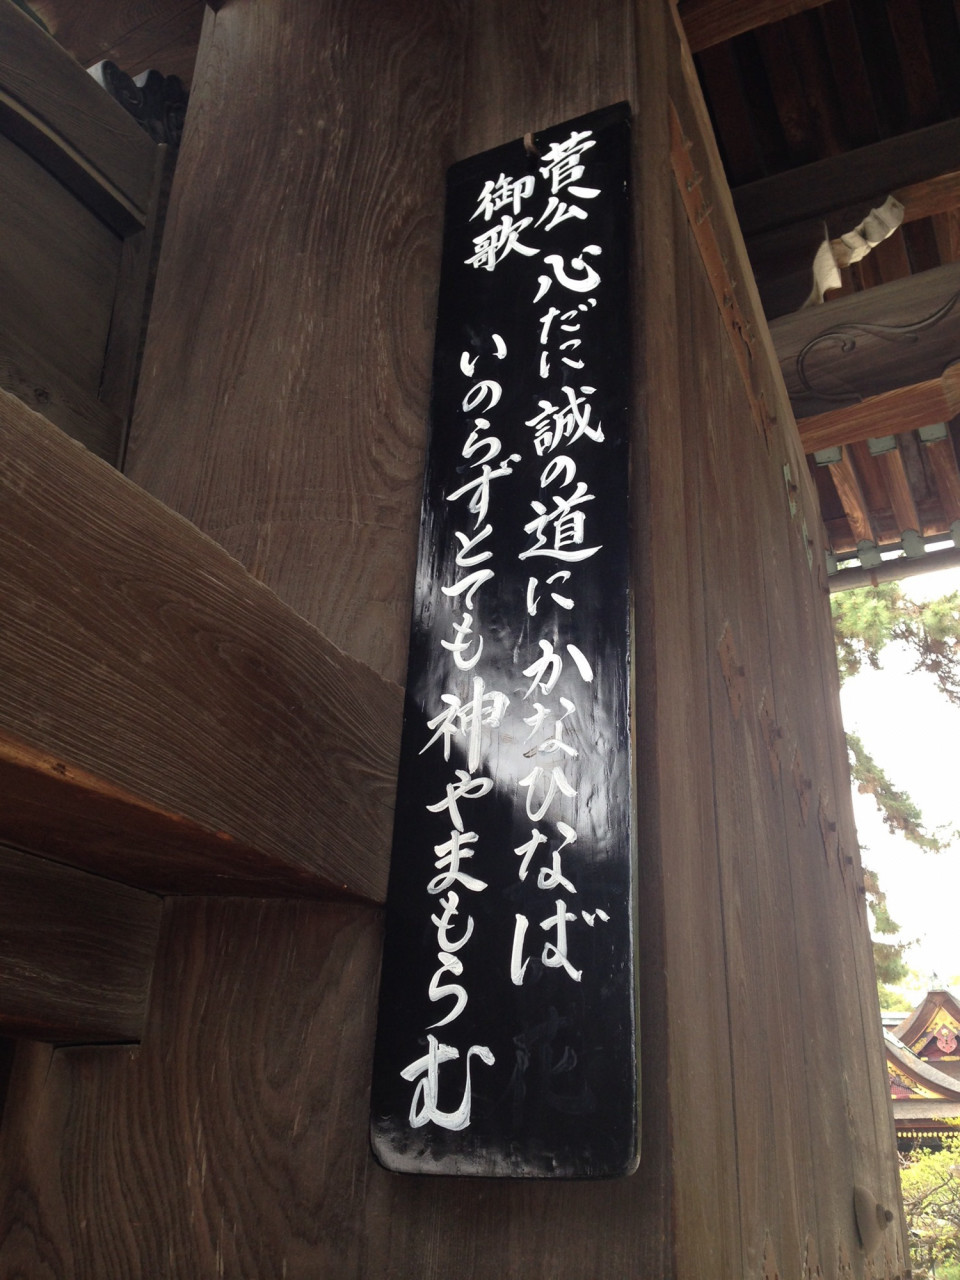 菅公
御歌
心だに誠の道にかなひなば
いのらずとても神やまもらむ